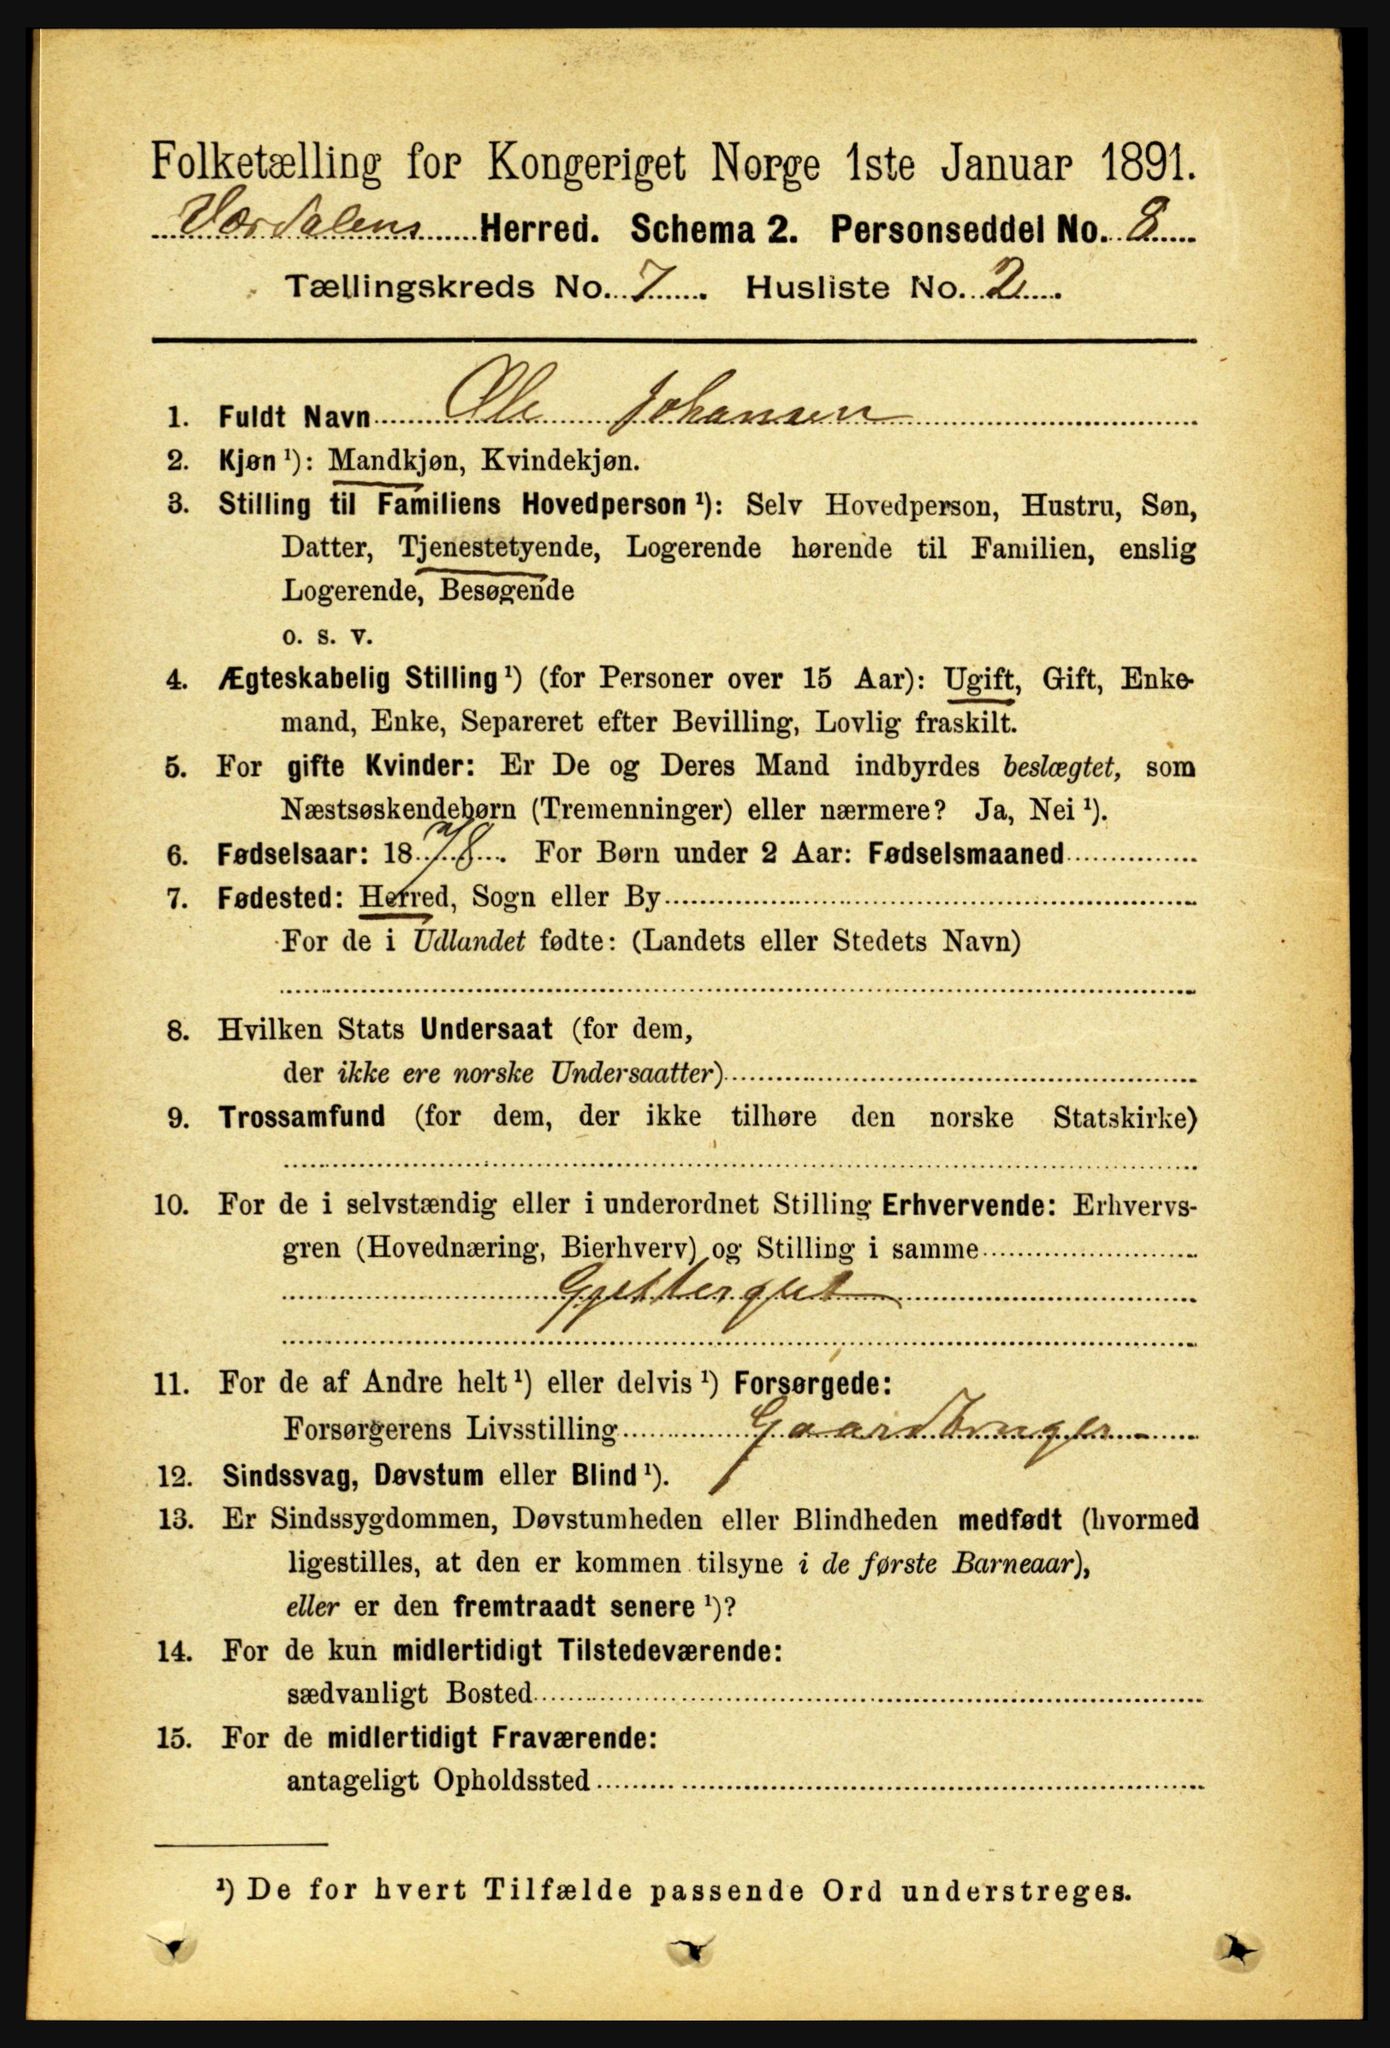 Folketælling for Kongeriget Norge 1ste Januar 1891.
Værdalens Herred. Schema 2. Personseddel No. 8
Tællingskreds No. 7. Husliste No. 2.
1. Fuldt Navn Ole Johansen
2. Kjøn ¹): Mandkjøn, Kvindekjøn.
3. Stilling til Familiens Hovedperson ¹): Selv Hovedperson, Hustru, Søn,
Datter, Tjenestetyende, Logerende hørende til Familien, enslig
Logerende, Besøgende
o. s. v.
4. Ægteskabelig Stilling ¹) (for Personer over 15 Aar): Ugift, Gift, Enke-
mand, Enke, Separeret efter Bevilling, Lovlig fraskilt.
5. For gifte Kvinder: Er De og Deres Mand indbyrdes beslægtet, som
Næstsøskendebørn (Tremenninger) eller nærmere? Ja, Nei ¹).
6. Fødselsaar: 1878. For Børn under 2 Aar: Fødselsmaaned
7. Fødested: Herred, Sogn eller By
For de i Udlandet fødte: (Landets eller Stedets Navn)
8. Hvilken Stats Undersaat (for dem,
der ikke ere norske Undersaatter)
9. Trossamfund (for dem, der ikke tilhøre den norske Statskirke)
10. For de i selvstændig eller i underordnet Stilling Erhvervende: Erhvervs-
gren (Hovednæring, Bierhverv) og Stilling i samme
Gjettergut
11. For de af Andre helt ¹) eller delvis ¹) Forsørgede:
Forsørgerens Livsstilling Gaardbruger
12. Sindssvag, Døvstum eller Blind ¹).
13. Er Sindssygdommen, Døvstumheden eller Blindheden medfødt (hvormed
ligestilles, at den er kommen tilsyne i de første Barneaar),
eller er den fremtraadt senere ¹)?
14. For de kun midlertidigt Tilstedeværende:
sædvanligt Bosted
15. For de midlertidigt Fraværende:
antageligt Opholdssted
¹) De for hvert Tilfælde passende Ord understreges.